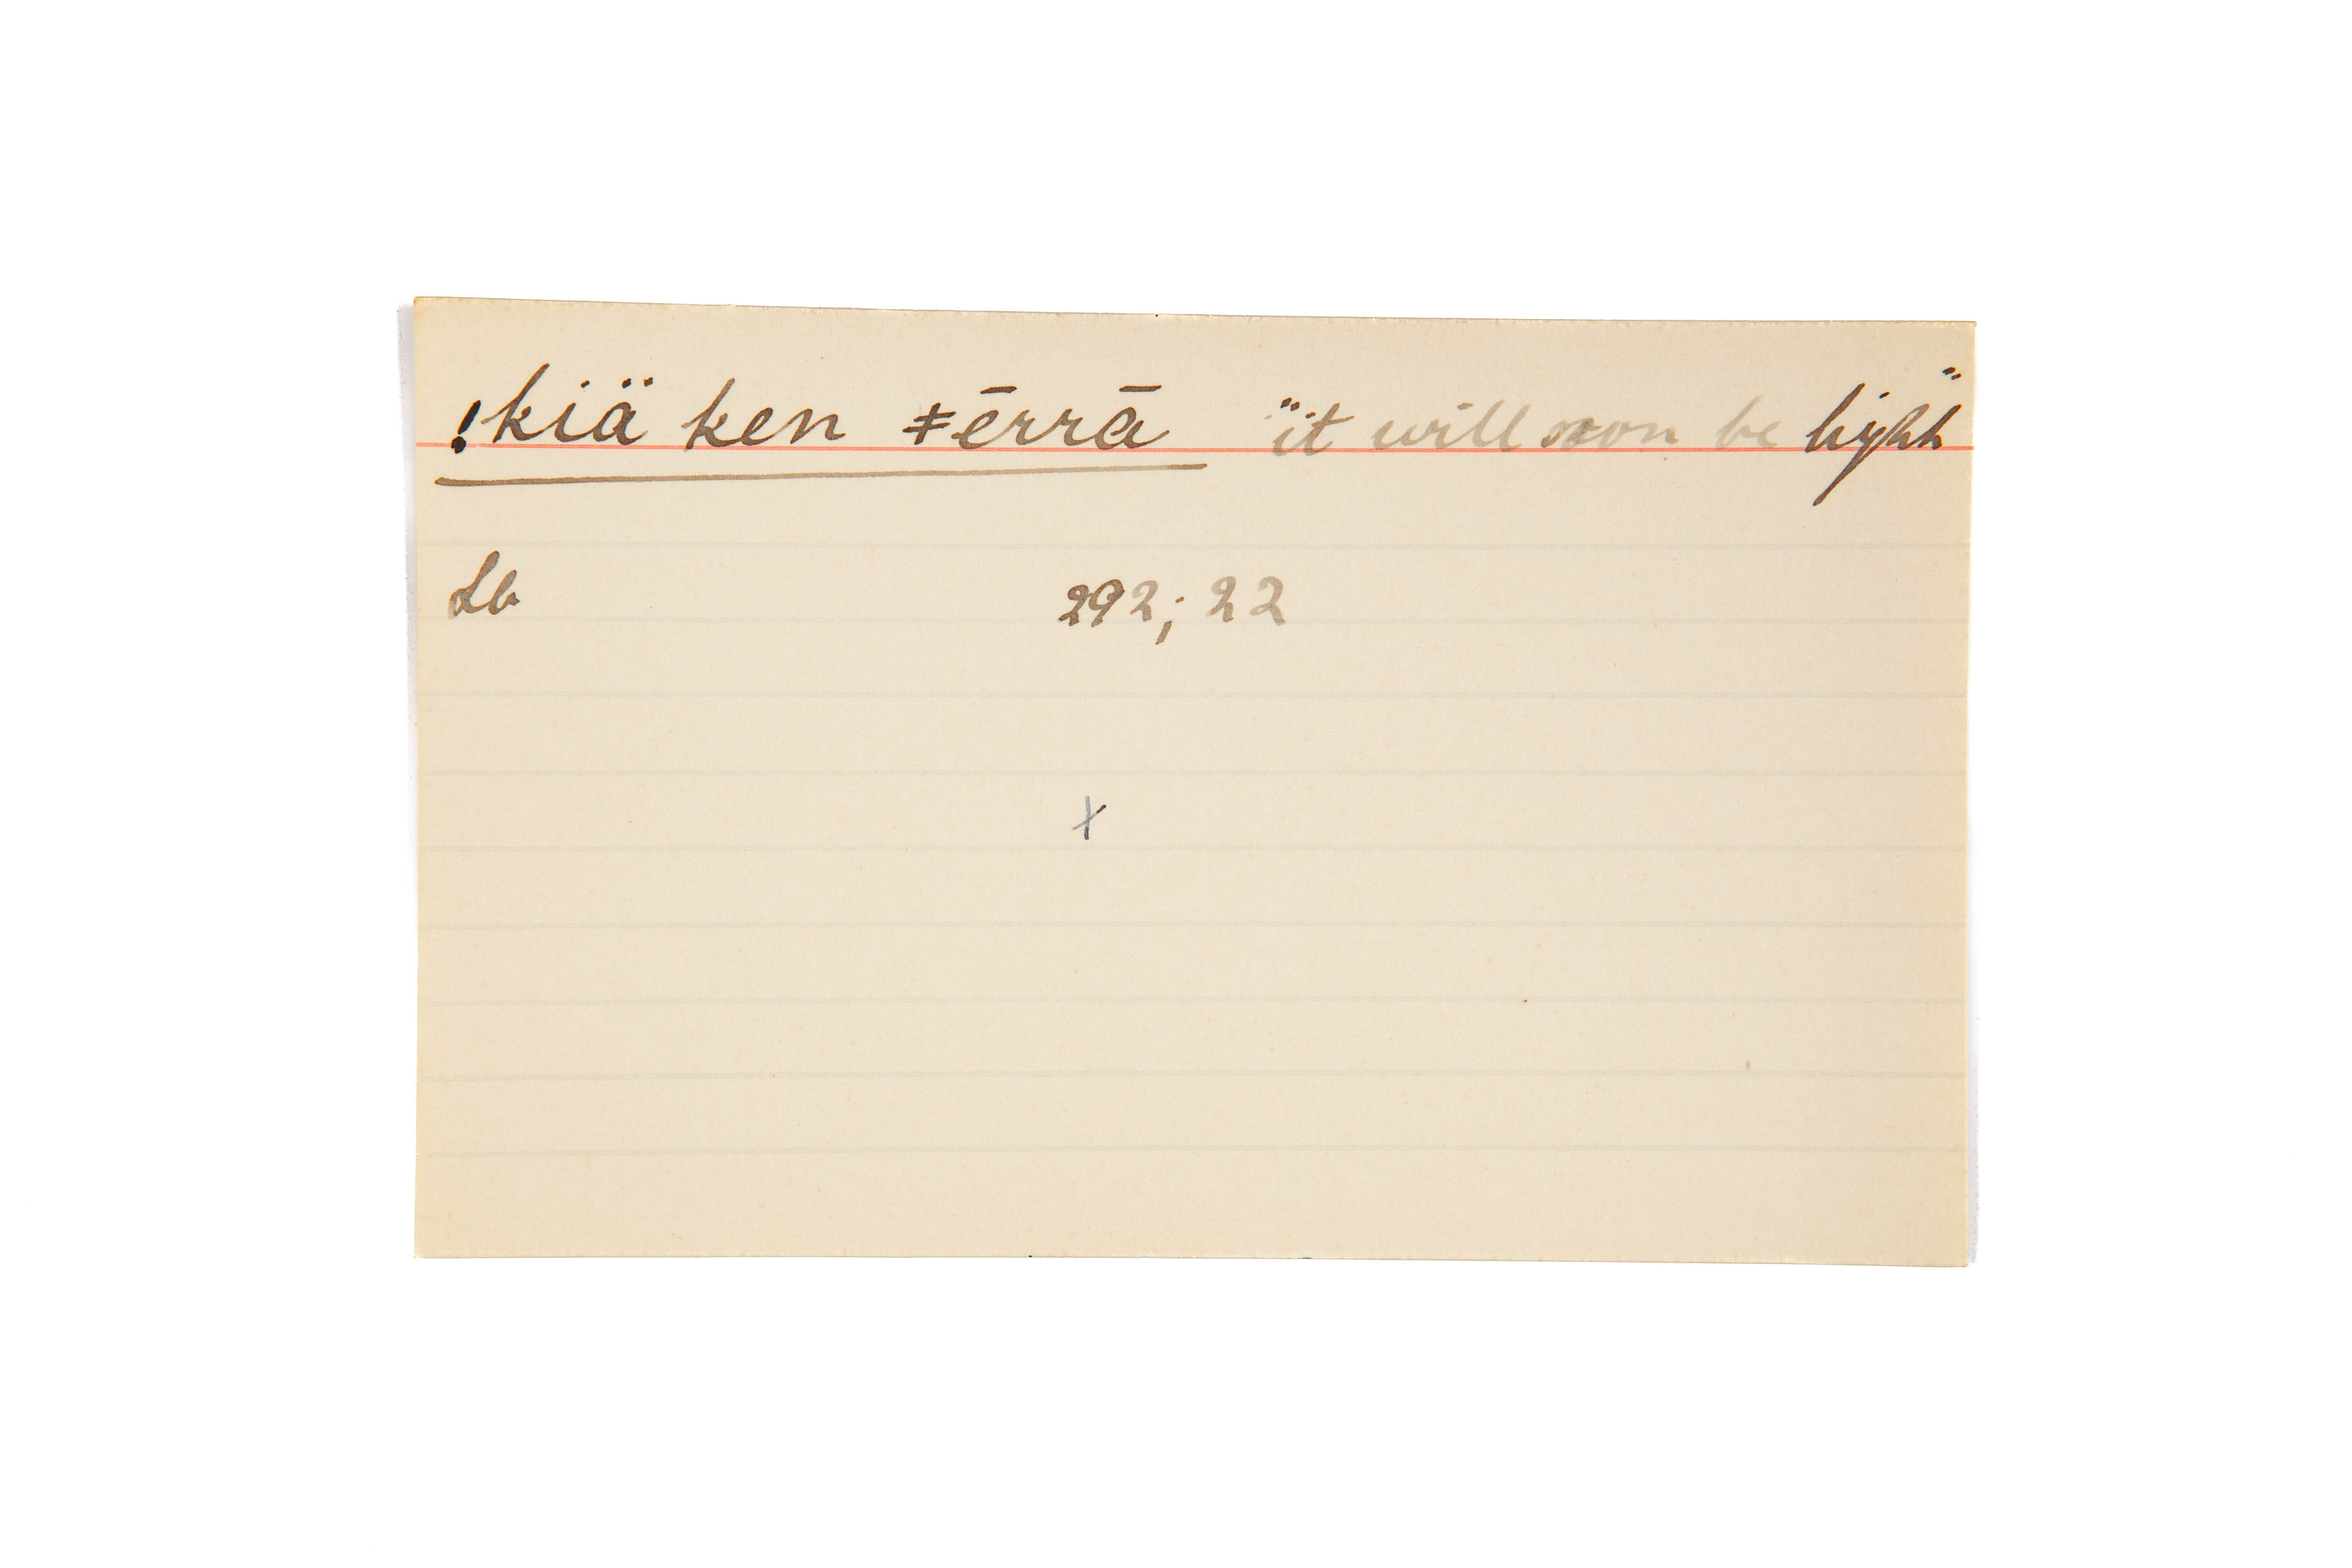 !kiä ken ǂērrā "it will soon be light"
Lb 292; 22
x